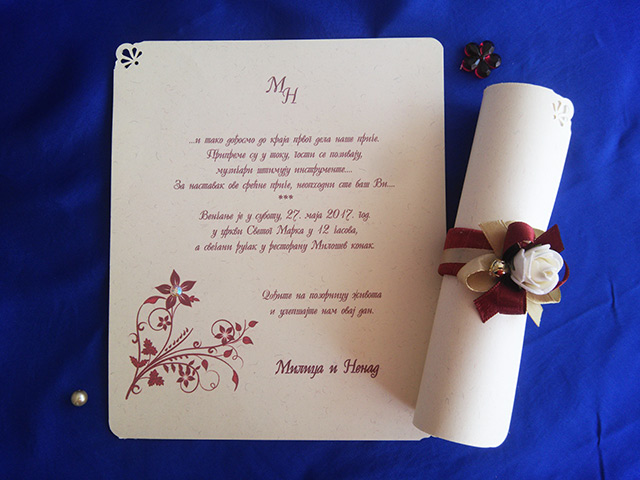 М
Н
...и тако дођосмо до краја првог дела наше приче.
Припреме су у току, гости се позивају,
музичари штимују инструменте....
За наставак ове срећне приче, неопходни сте баш Ви....
***
Венчање је у суботу, 27. маја 2017. год.
у цркви Светог Марка у 12 часова,
а свечани ручак у ресторану Милошев конак.
Дођите на позорницу живота
и улепшајте нам овај дан.
Милица и Ненад